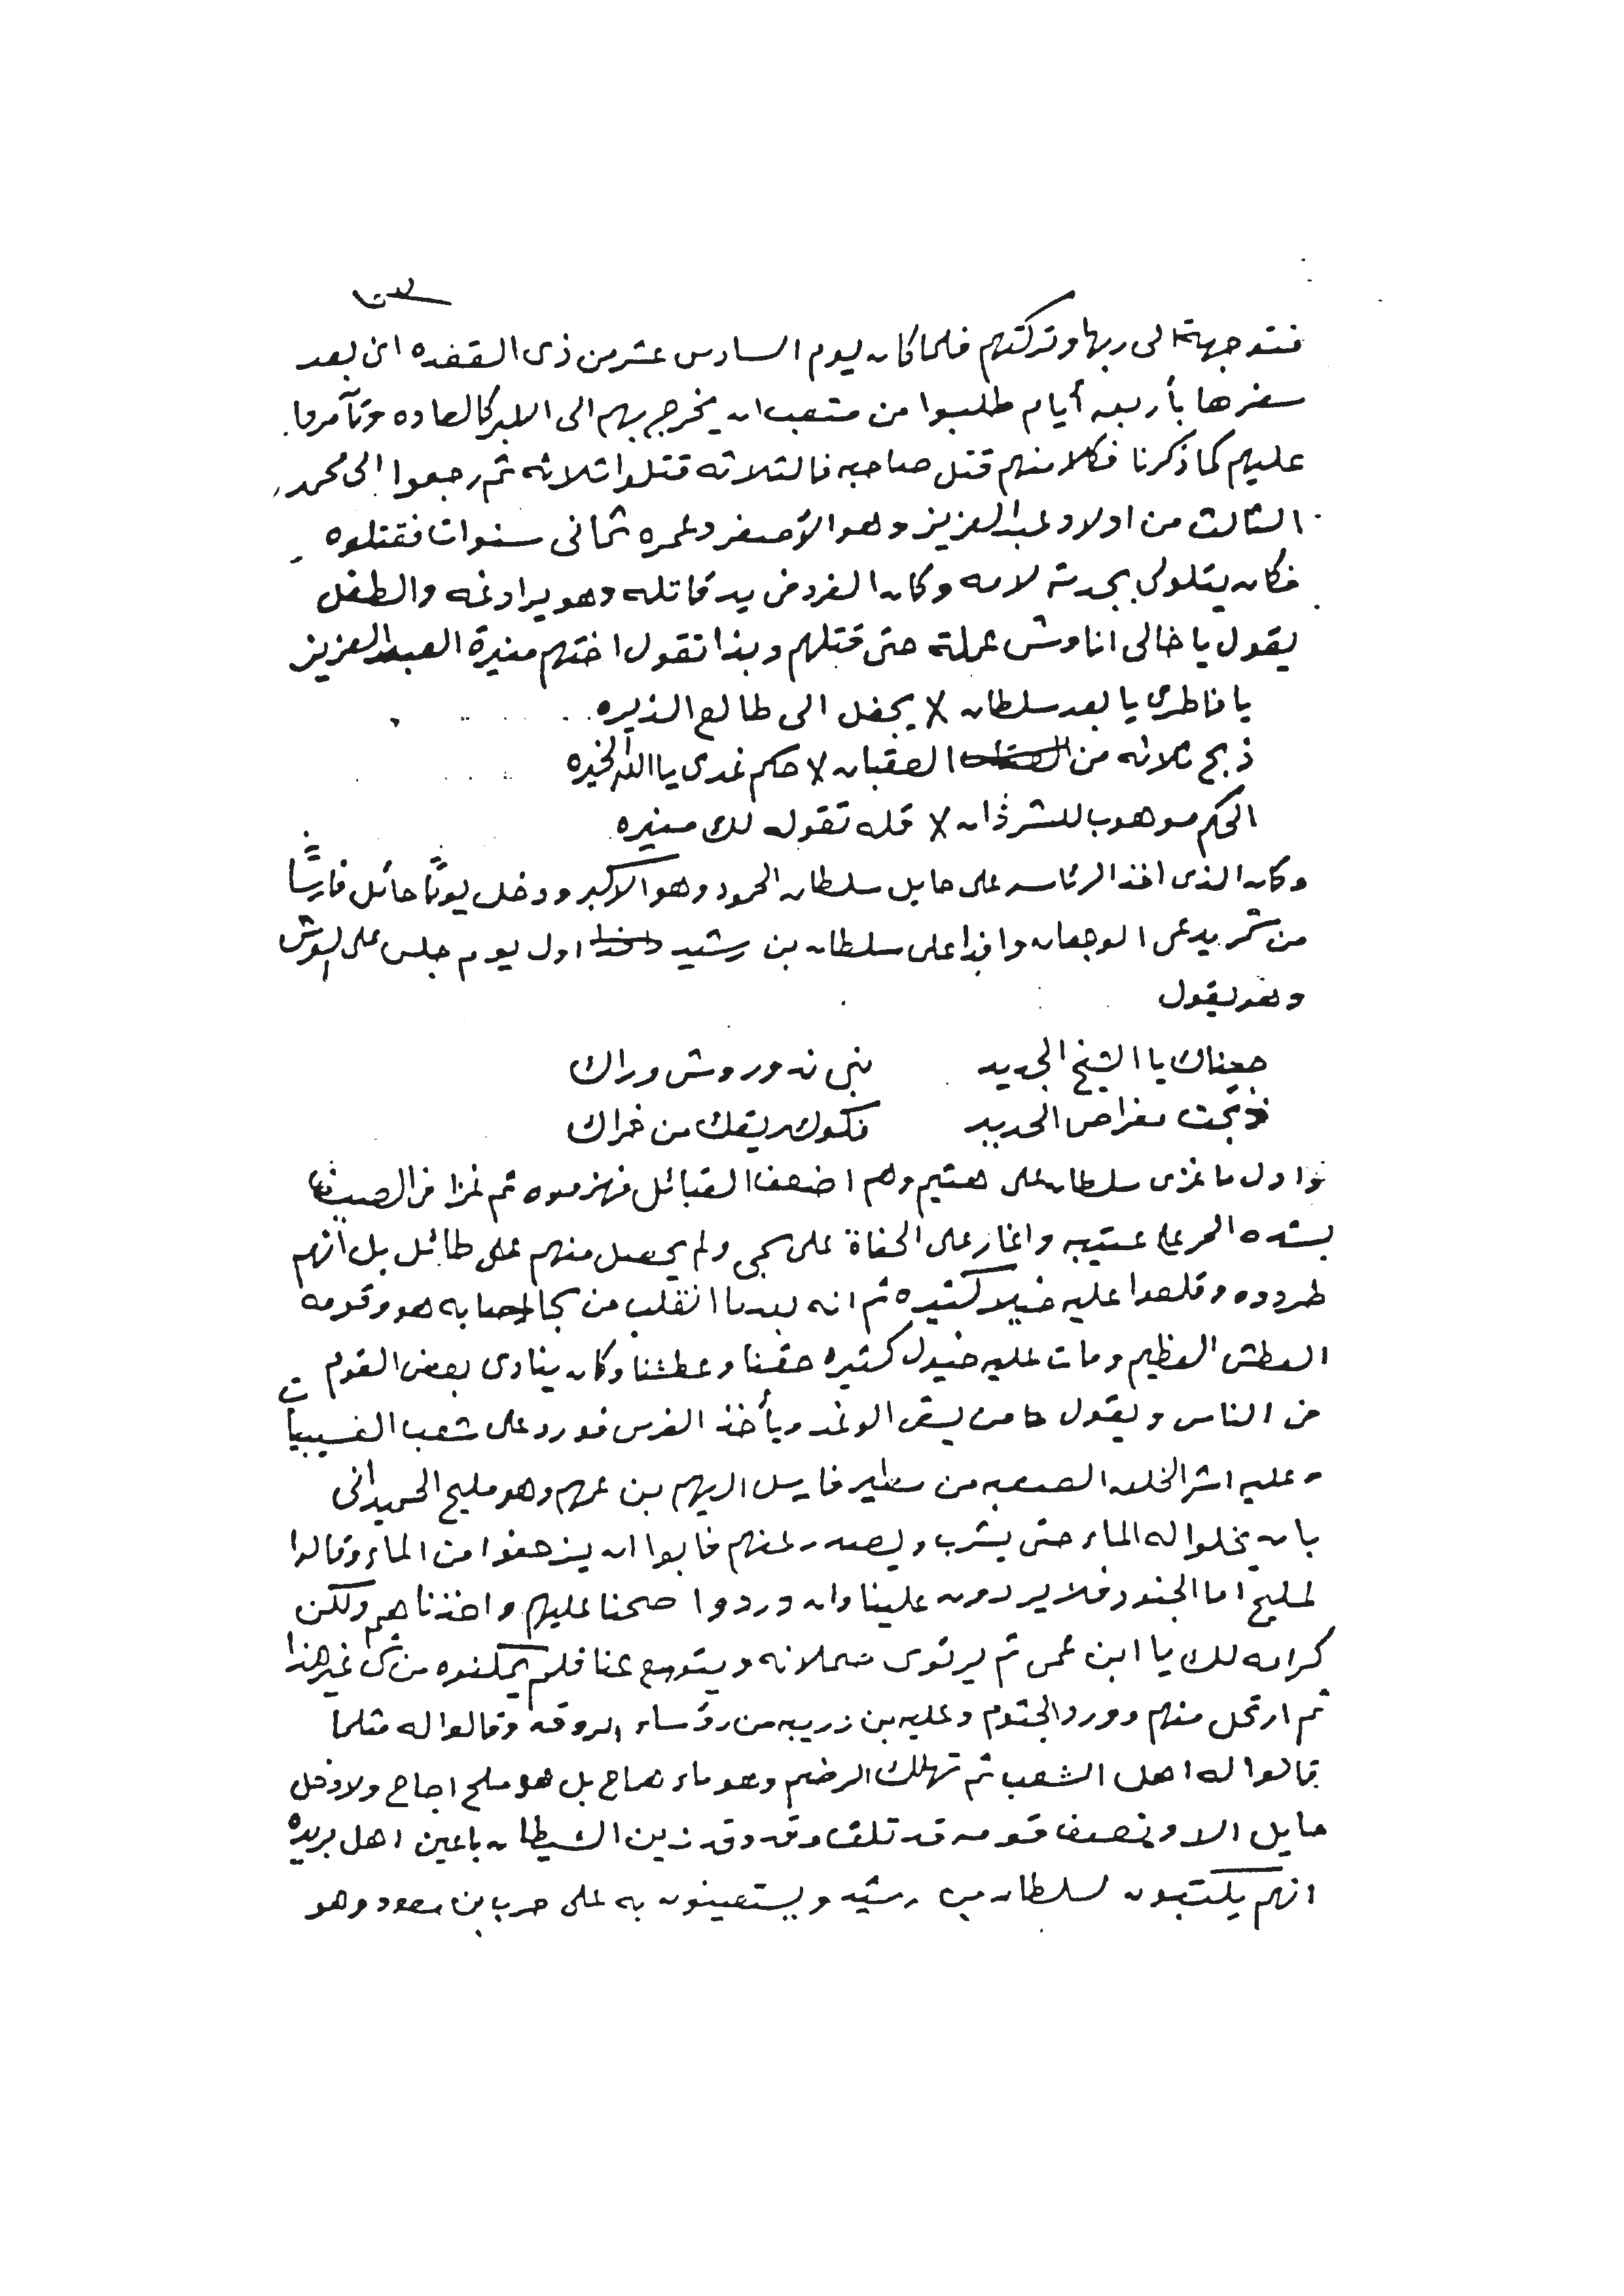 فتوجهة الى ربها وتركتهم فلما كان يوم السادس عشر من ذى القعده اى بعد
سفرها بأربعه أيام طلبوا من متعب ان يخرج بهم الى الابر كالعاده وتآمروا
عليهم كما ذكرنا فكلا منهم قتل صاحبه فالثلاثه قتلوا ثلاثه ثم رجعوا الى محمد
الثالث من اولاد عبدالعزيز وهو الأصغر وعمره ثمانى سنوات فقتلوه
فكان يتلولى بجدته لامه وكان الفرد فى يد قاتله وهو يراوغه والطفل
يقول يا خالى انا وش عملة حتى قتلهم وبذا تقول اختهم منيرة العبدالعزيز
يا ناطرى يا بعد سلطان لا يجفل الى طالع الذيره
ذبح ثلاثه من العقبان لا حكم غدى يا الله الخيره
الحكم موهوب للشرذان لا قله تقوله لك منيره
وكان الذى اخذ الرئاسه على حايل سلطان الحمود وهو الاكبر ودخل يومًا حائل فارسًا
من شمر يدعى الوجعان وافدا على سلطان بن رشيد اول يوم جلس على العرش
وهو يقول
جيناك يا الشيخ الجديد نبى ندور وش وراك
ذبحت مقراص الحديد فكوك ريقك من خراك
واول ما غزى سلطان على هتيم وهم اضعف القبائل فهزموه ثم غزا فى الصيف
بشده الحر على عتيبه واغار على الحفاة على سجى ولم يحصل منهم على طائل بل انهم
طردوه وقلعوا عليه خيلا كثيره ثم انه بعد ما انقلب من سجا اصابه هو وقومه
العطش العظيم ومات عليه خيول كثيره حقنا وعطشا وكان ينادى بعض القوم
فى الناس ويقول ها من يسقى الوغد ويأخذ الفرس فورد على شعب العسيبيات
وعليه اشر الخلق الصعبه من مطير فارسل اليهم بن عمهم وهو مليح الحميدانى
بان يخلوا له الماء حتى يشرب ويصدر عنهم فابوا ان ينزهفوا من الماء وقالوا
لمليح اما الجنود فلا يردون علينا وان وردوا صحنا عليهم واخذناهم ولكن
كرامه لك يا ابن عمى ثم يرتوى صملانه ويتوسع عنا فلم يمكنوه من شى غير هذا
ثم ارتحل منهم وورد الجثوم وعليه بن زريبه من رؤساء الروقه وقالوا له مثلما
قالوا له اهل الشعب ثم تهلك الرضم وهو ماء هماج بل هو ملح اجاج ولا دخل
حايل الا ونصف قومه قد تلف وقد زين الشيطان باعين اهل بريده
انهم يكتبون لسلطان بن رشيد ويستعينون به على حرب بن سعود وهو